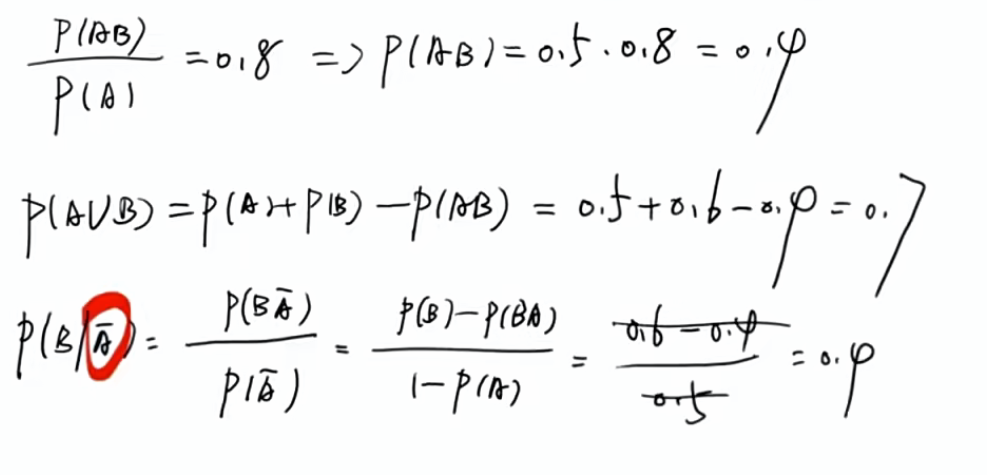 P(AB)/P(A) = 0.8 => P(AB) = 0.5 · 0.8 = 0.4
P(A∪B) = P(A) + P(B) − P(AB) = 0.5 + 0.6 − 0.4 = 0.7
P(B|Ā) = P(BĀ)/P(Ā) = P(B) − P(BA)/1 − P(A) = 0.6 − 0.4/0.5 = 0.4